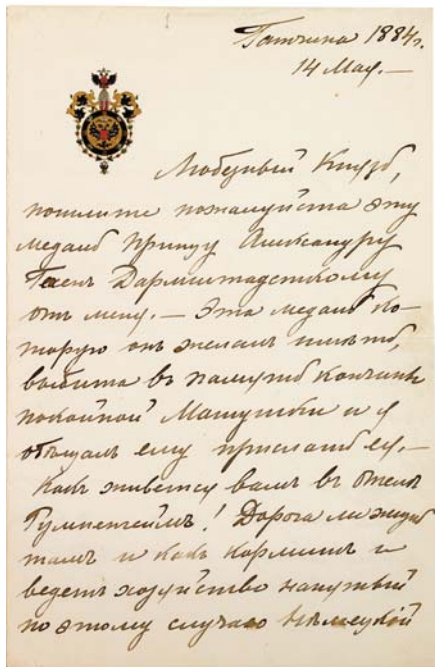 Гатчина 1884 г.
14 Мая. —
Любезный Князь,
пошлите пожалуйста эту
медаль Принцу Александру
Гессен Дармштадтскому
отъ меня. — Эта медаль ко-
торую онъ желалъ имѣть,
выбита въ память кончины
покойной Матушки и я
обѣщалъ ему прислать ея. —
Какъ живется вамъ въ отелѣ
! Дорога ли жизнь
тамъ и какъ кормитъ и
ведетъ хозяйство нанятый
по этому случаю нѣмецкой